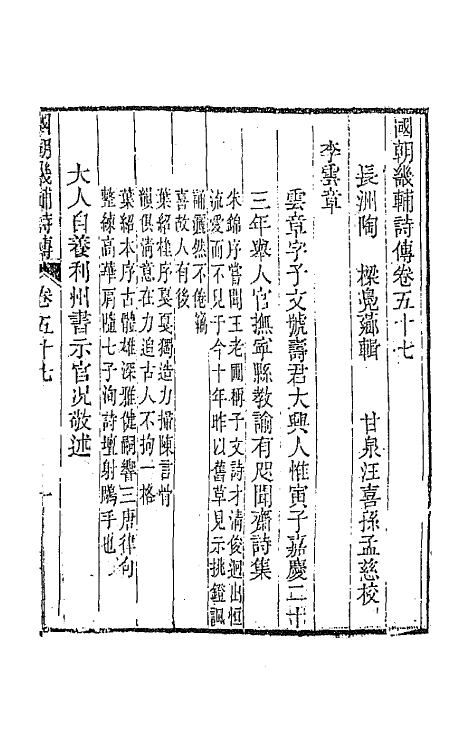 國朝畿輔詩傳卷五十七
長洲陶　樑鳧薌輯　　甘泉汪喜孫孟慈校
李雲章
雲章字子文號壽君大興人惟寅子嘉慶二十
三年舉人官撫寧縣教諭有咫聞齋詩集
朱錦序嘗聞王老圃稱子文詩才清俊迥出恒
流愛而不見于今十年昨以舊草見示挑鐙諷
誦灑然不倦竊
喜故人有後
葉紹桂序戛戛獨造力掃陳言骨
韻俱清意在力追古人不拘一格
葉紹本序古體雄深雅健嗣響三唐律句
整練高華肩隨七子洵詩壇射鵰手也
大人自養利州書示官况敬述
國朝畿輔詩傳　卷五十七　一